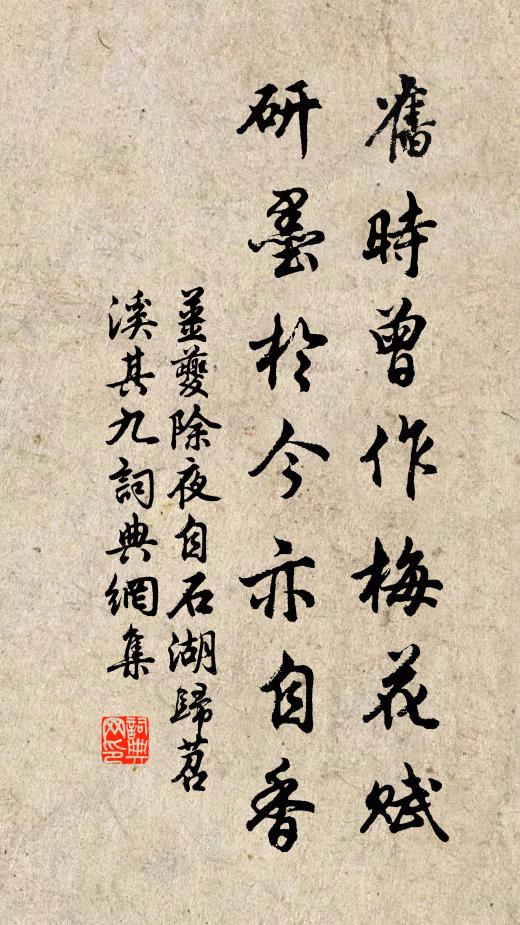 舊時曾作梅花賦
研墨於今亦自香
姜夔除夜自石湖歸苕
溪其九詞典網集
詞典
网印